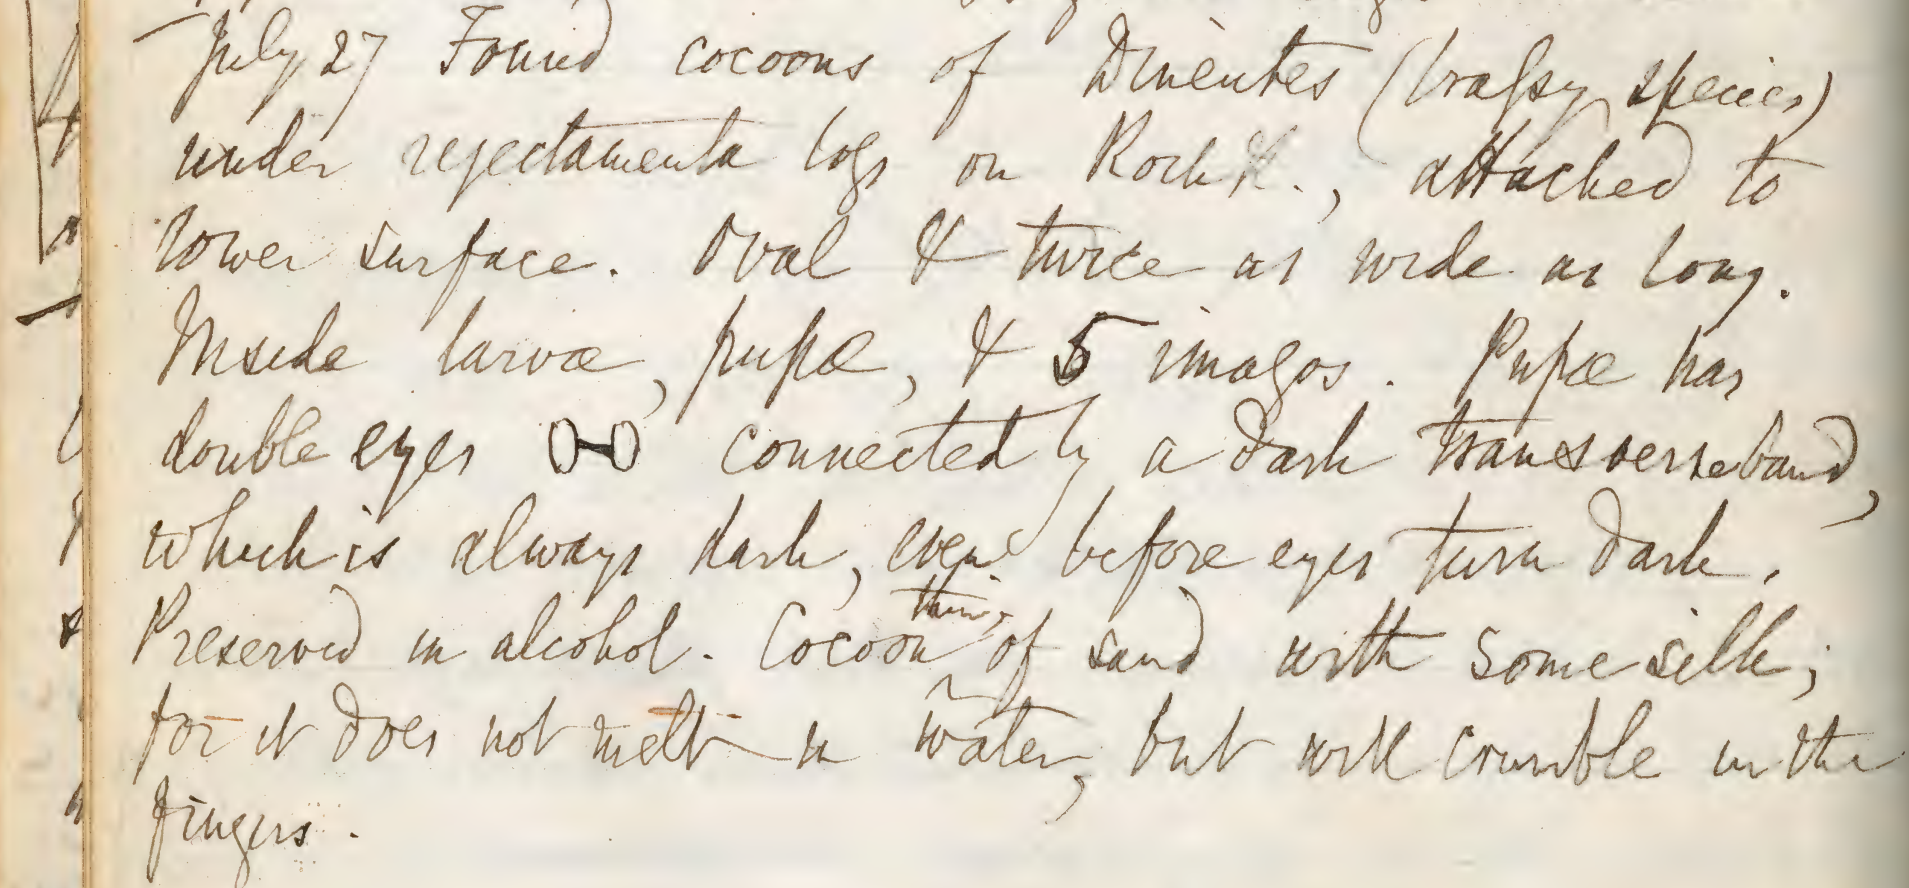 July 27 Found cocoons of Dineutes (brassy species)
under rejectamenta logs on Rock K., attached to
lower surface. Oval & twice as wide as long.
Inside larvæ, pupæ, & 5 imagos. Pupæ has
double eyes connected by a dark transverse band,
which is always dark, even before eyes turn dark.
Preserved in alcohol. Cocoon thin, of sand with some silk;
for it does not melt in water, but will crumble in the
fingers.